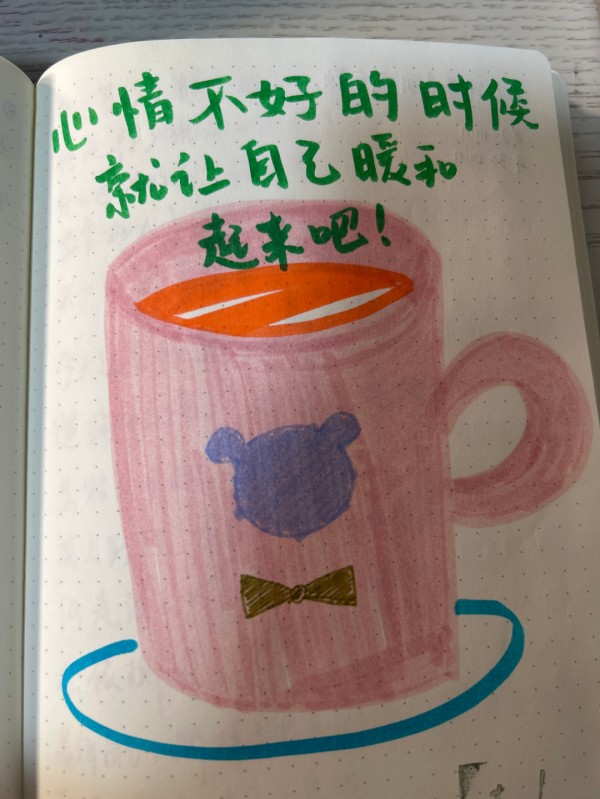 心情不好的时候
就让自己暖和
起来吧！